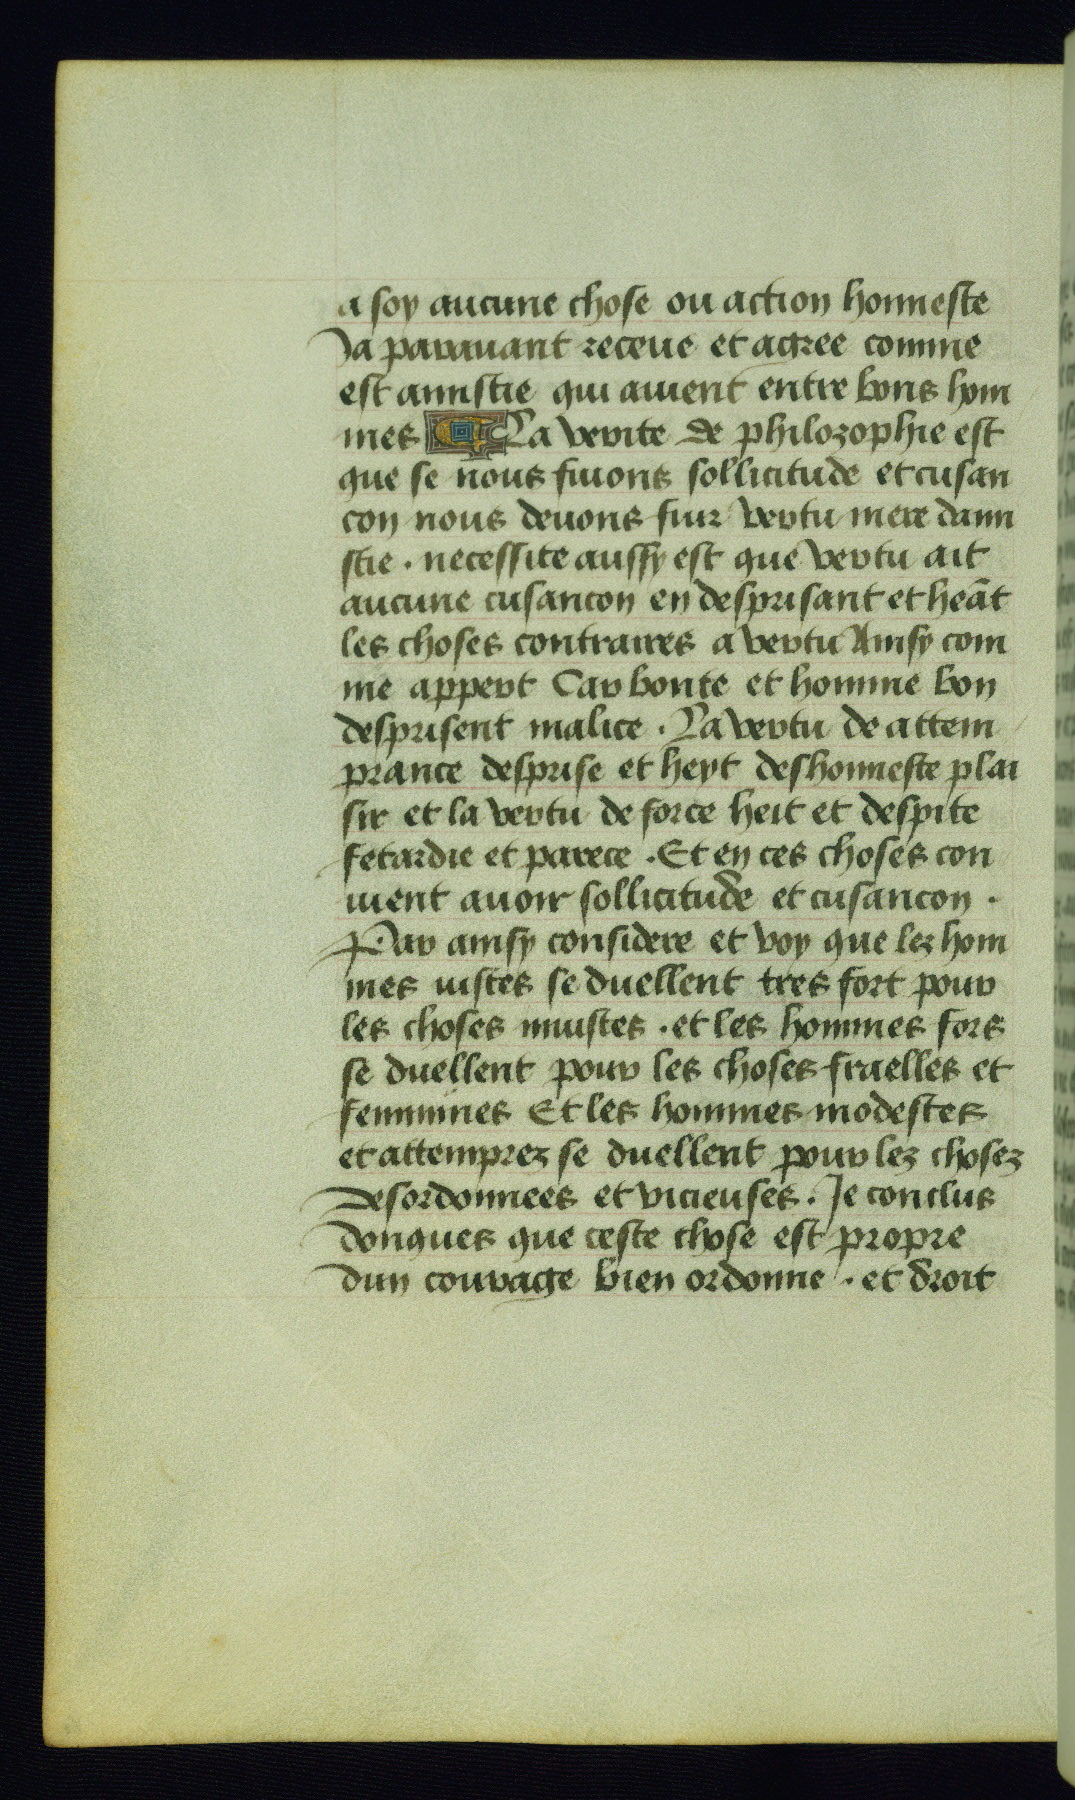 a soy aucune chose ou action honneste
Ja paravant receue et agree comme
est amistie qui avient entre bons hom
mes La verite de philozophie est
que se nous fuions sollicitude et cusan
con nous devons fuir vertu mere dami
stie . necessite aussy est que vertu ait
aucune cusancon en desprisant et heãt
les choses contraires a vertu Ainsy com
me appert Car bonte et homme bon
desprisent malice . La vertu de attem
prance desprise et heyt deshonneste plai
sir et la vertu de force heit et despite
fetardie et parece . Et en ces choses con
vient avoir sollicitude et cusancon .
Par ainsy considere et voy que lez hom
mes iustes se duellent tres fort pour
les choses iniustes . et les hommes fors
se duellent pour les choses fraelles et
feminines Et les hommes modestes
et attemprez se duellent pour lez chosez
desordonnees et vicieuses . Je conclus
donques que ceste chose est propre
dun courage bien ordonne . et droit